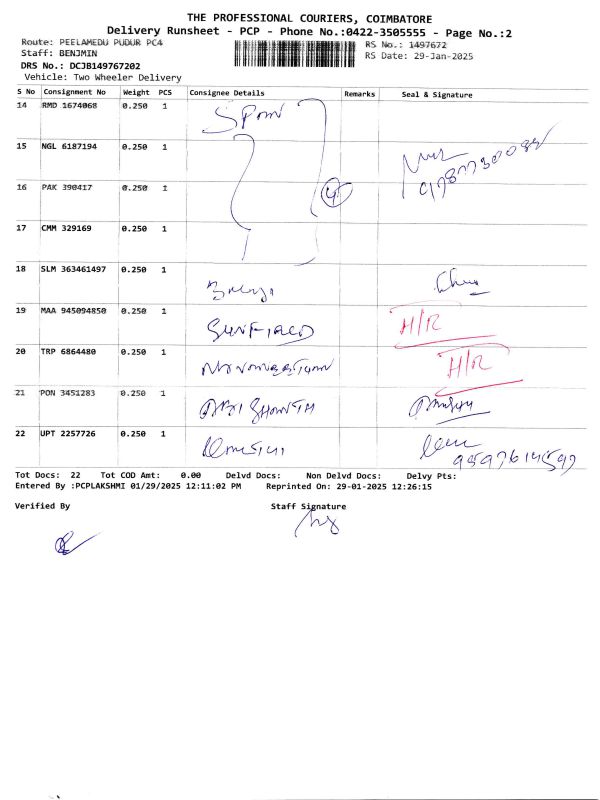 THE PROFESSIONAL COURIERS, COIMBATORE
Delivery Runsheet - PCP - Phone No.:0422-3505555 - Page No.:2
Route: PEELAMEDU PUDUR PC4
RS No.: 1497672
Staff: BENJMIN
RS Date: 29-Jan-2025
DRS No.: DCJB149767202
Vehicle: Two Wheeler Delivery
S No Consignment No Weight PCS Consignee Details Remarks Seal & Signature
14 RMD 1674068 0.250 1
15 NGL 6187194 0.250 1
16 PAK 390417 0.250 1 4
17 CMM 329169 0.250 1
18 SLM 363461497 0.250 1
19 MAA 945094850 0.250 1 H/R
20 TRP 6864480 0.250 1 H/R
21 PON 3451283 0.250 1
22 UPT 2257726 0.250 1
Tot Docs: 22 Tot COD Amt: 0.00 Delvd Docs: Non Delvd Docs: Delvy Pts:
Entered By :PCPLAKSHMI 01/29/2025 12:11:02 PM Reprinted On: 29-01-2025 12:26:15
Verified By Staff Signature